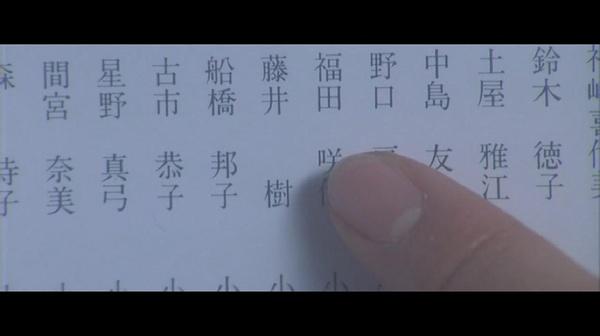 鈴木 徳子
土屋 雅江
中島 友
野口
福田 咲
藤井 樹
船橋 邦子
古市 恭子
星野 真弓
間宮 奈美